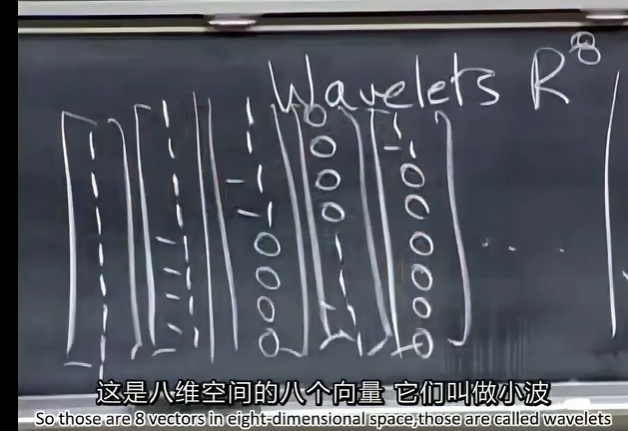 Wavelets R⁸
[1 1 1 1 1 1 1 1] [1 1 1 1 -1 -1 -1 -1] [1 1 -1 -1 0 0 0 0] [0 0 0 0 1 1 -1 -1] [1 -1 0 0 0 0 0 0] ....
这是八维空间的八个向量 它们叫做小波
So those are 8 vectors in eight-dimensional space,those are called wavelets